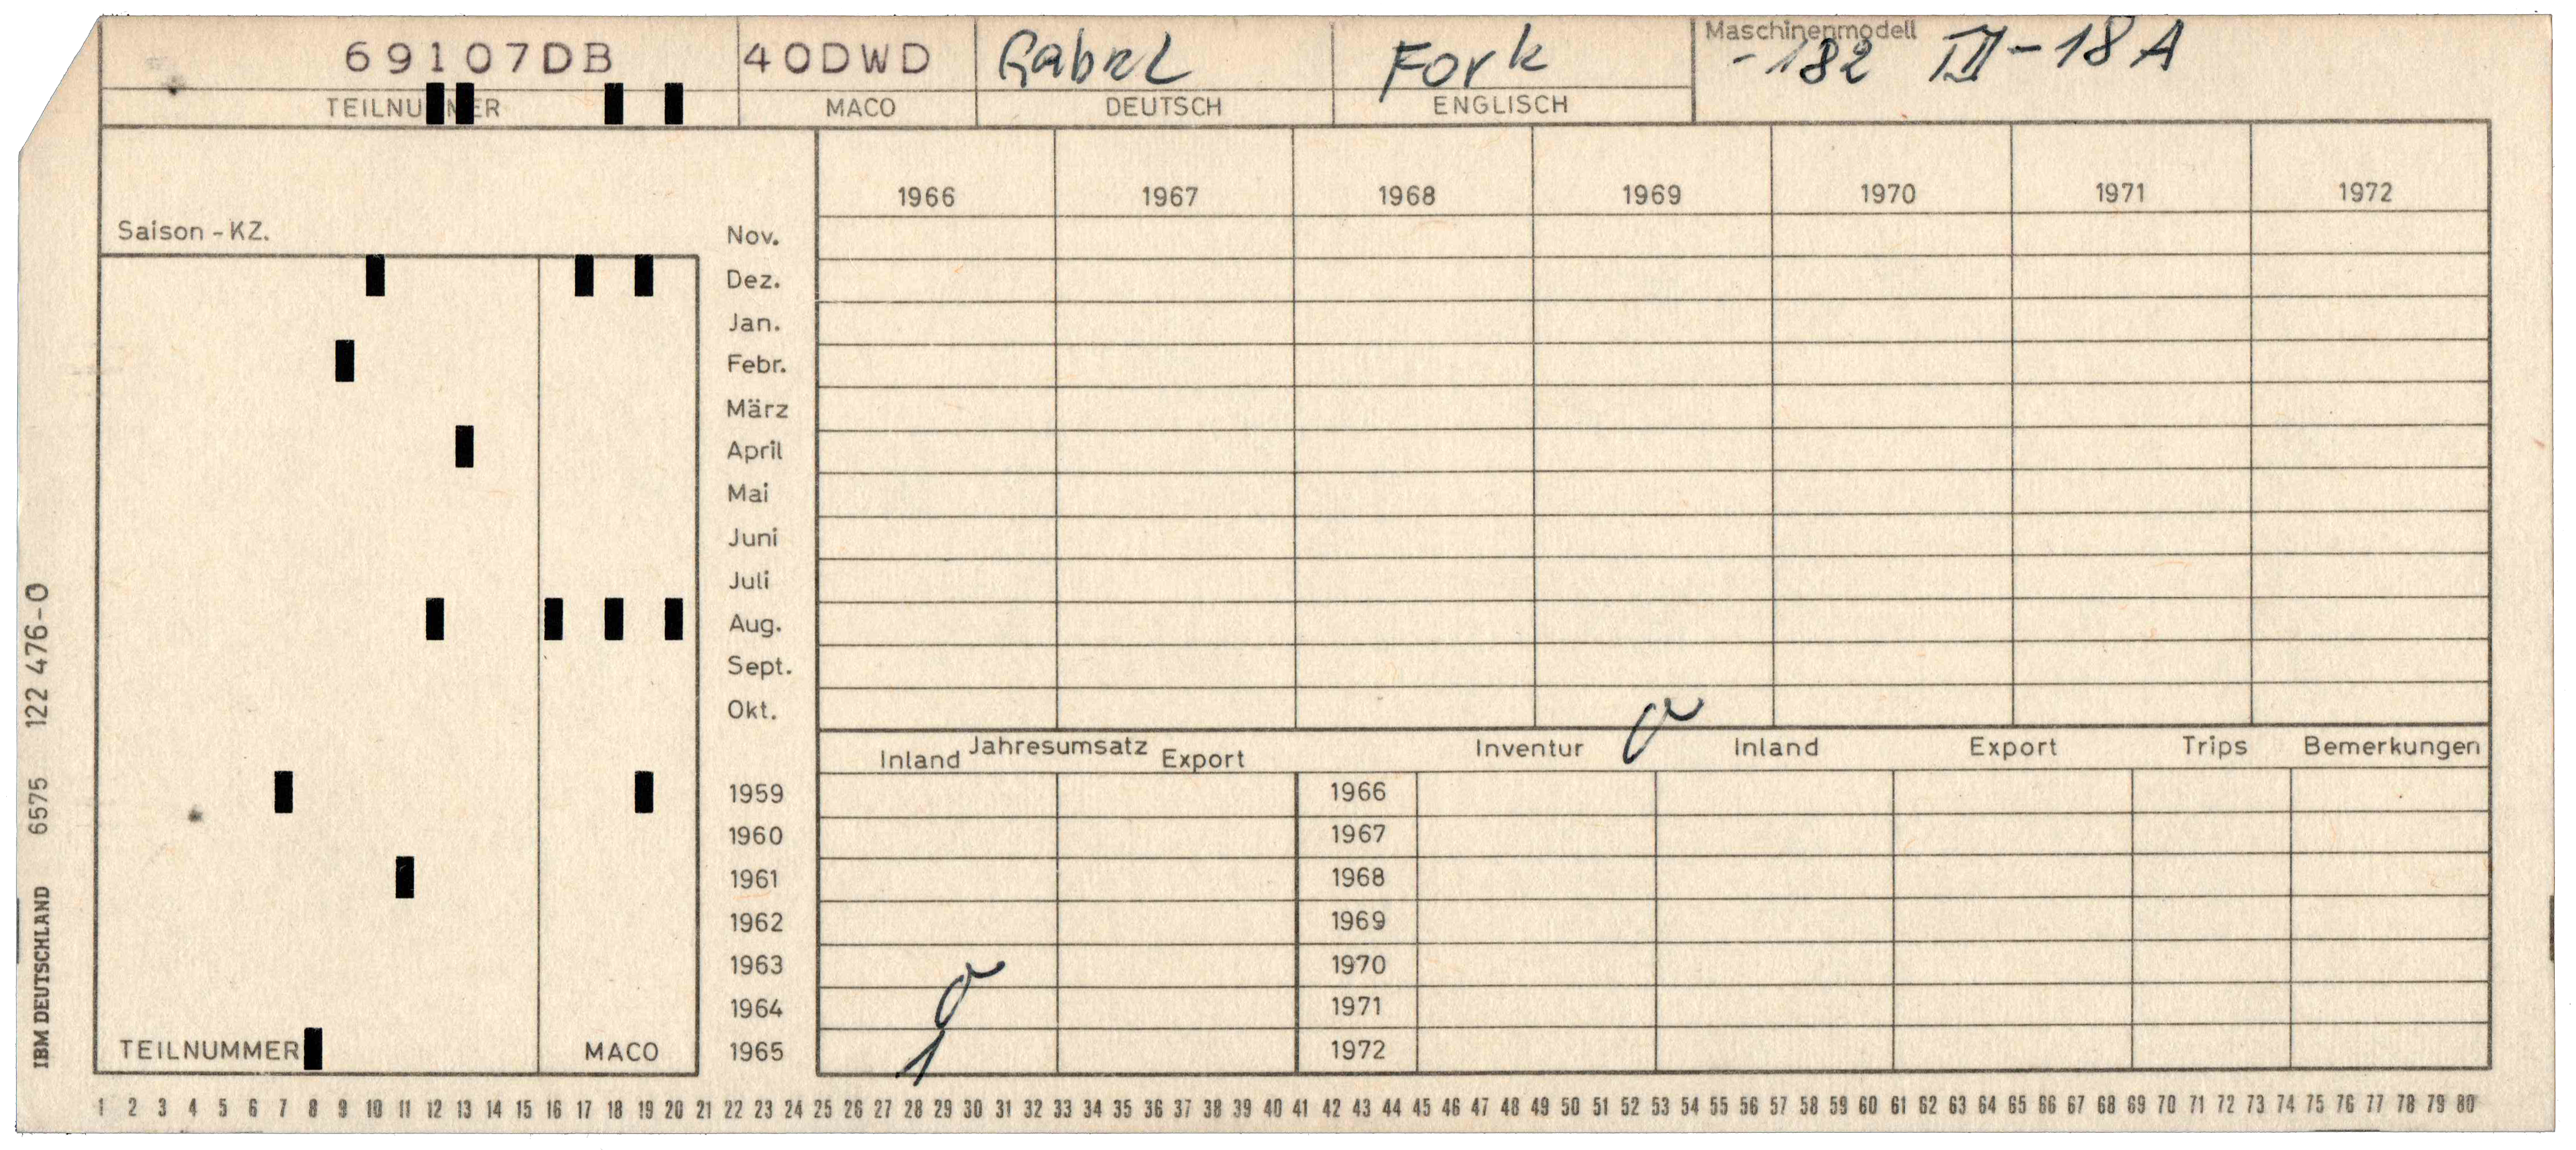 69107DB 40DWD Gabel Fork Maschinenmodell
-182 III-18A
TEILNUMMER MACO DEUTSCH ENGLISCH
1966 1967 1968 1969 1970 1971 1972
Saison-KZ. Nov.
Dez.
Jan.
Febr.
März
April
Mai
Juni
Juli
Aug.
Sept.
Okt.
Inland Jahresumsatz Export Inventur Inland Export Trips Bemerkungen
1959 1966
1960 1967
1961 1968
1962 1969
1963 1970
1964 0 1971
TEILNUMMER MACO 1965 1 1972
1 2 3 4 5 6 7 8 9 10 11 12 13 14 15 16 17 18 19 20 21 22 23 24 25 26 27 28 29 30 31 32 33 34 35 36 37 38 39 40 41 42 43 44 45 46 47 48 49 50 51 52 53 54 55 56 57 58 59 60 61 62 63 64 65 66 67 68 69 70 71 72 73 74 75 76 77 78 79 80
IBM DEUTSCHLAND 6575 122 476-0